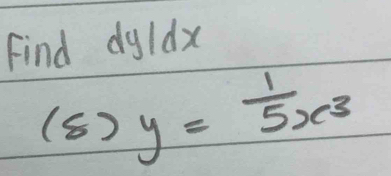 Find dy/dx
(8) y = 1/5 x³